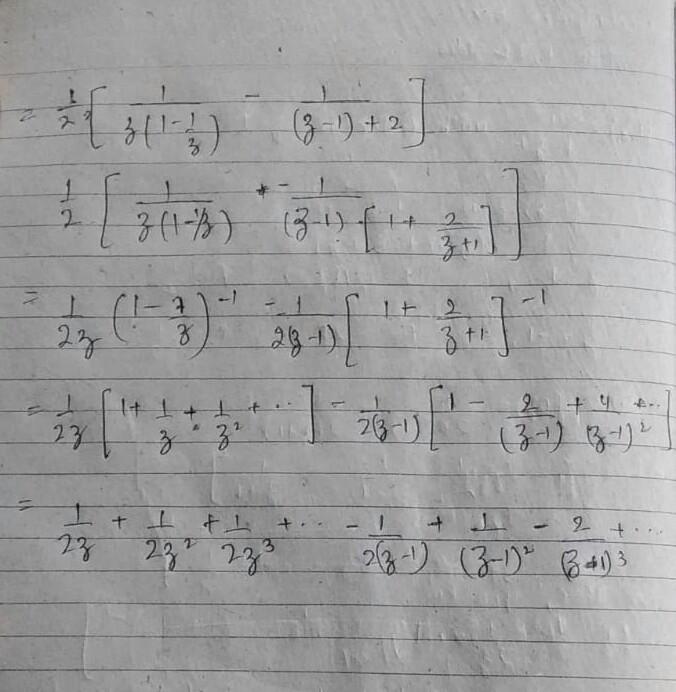 = 1/2 [ 1/(z(1-1/z)) - 1/((z-1)+2) ]
1/2 [ 1/(z(1-1/z)) - 1/((z-1)·[1+ 2/(z+1)]) ]
= 1/2z (1-7/z)^-1 - 1/2(z-1) [1+ 2/(z+1)]^-1
= 1/2z [1+ 1/z + 1/z^2 + ..] - 1/2(z-1) [1 - 2/(z-1) + 4/(z-1)^2 + ..]
= 1/2z + 1/2z^2 + 1/2z^3 + ... - 1/2(z-1) + 1/(z-1)^2 - 2/(z-1)^3 + ...